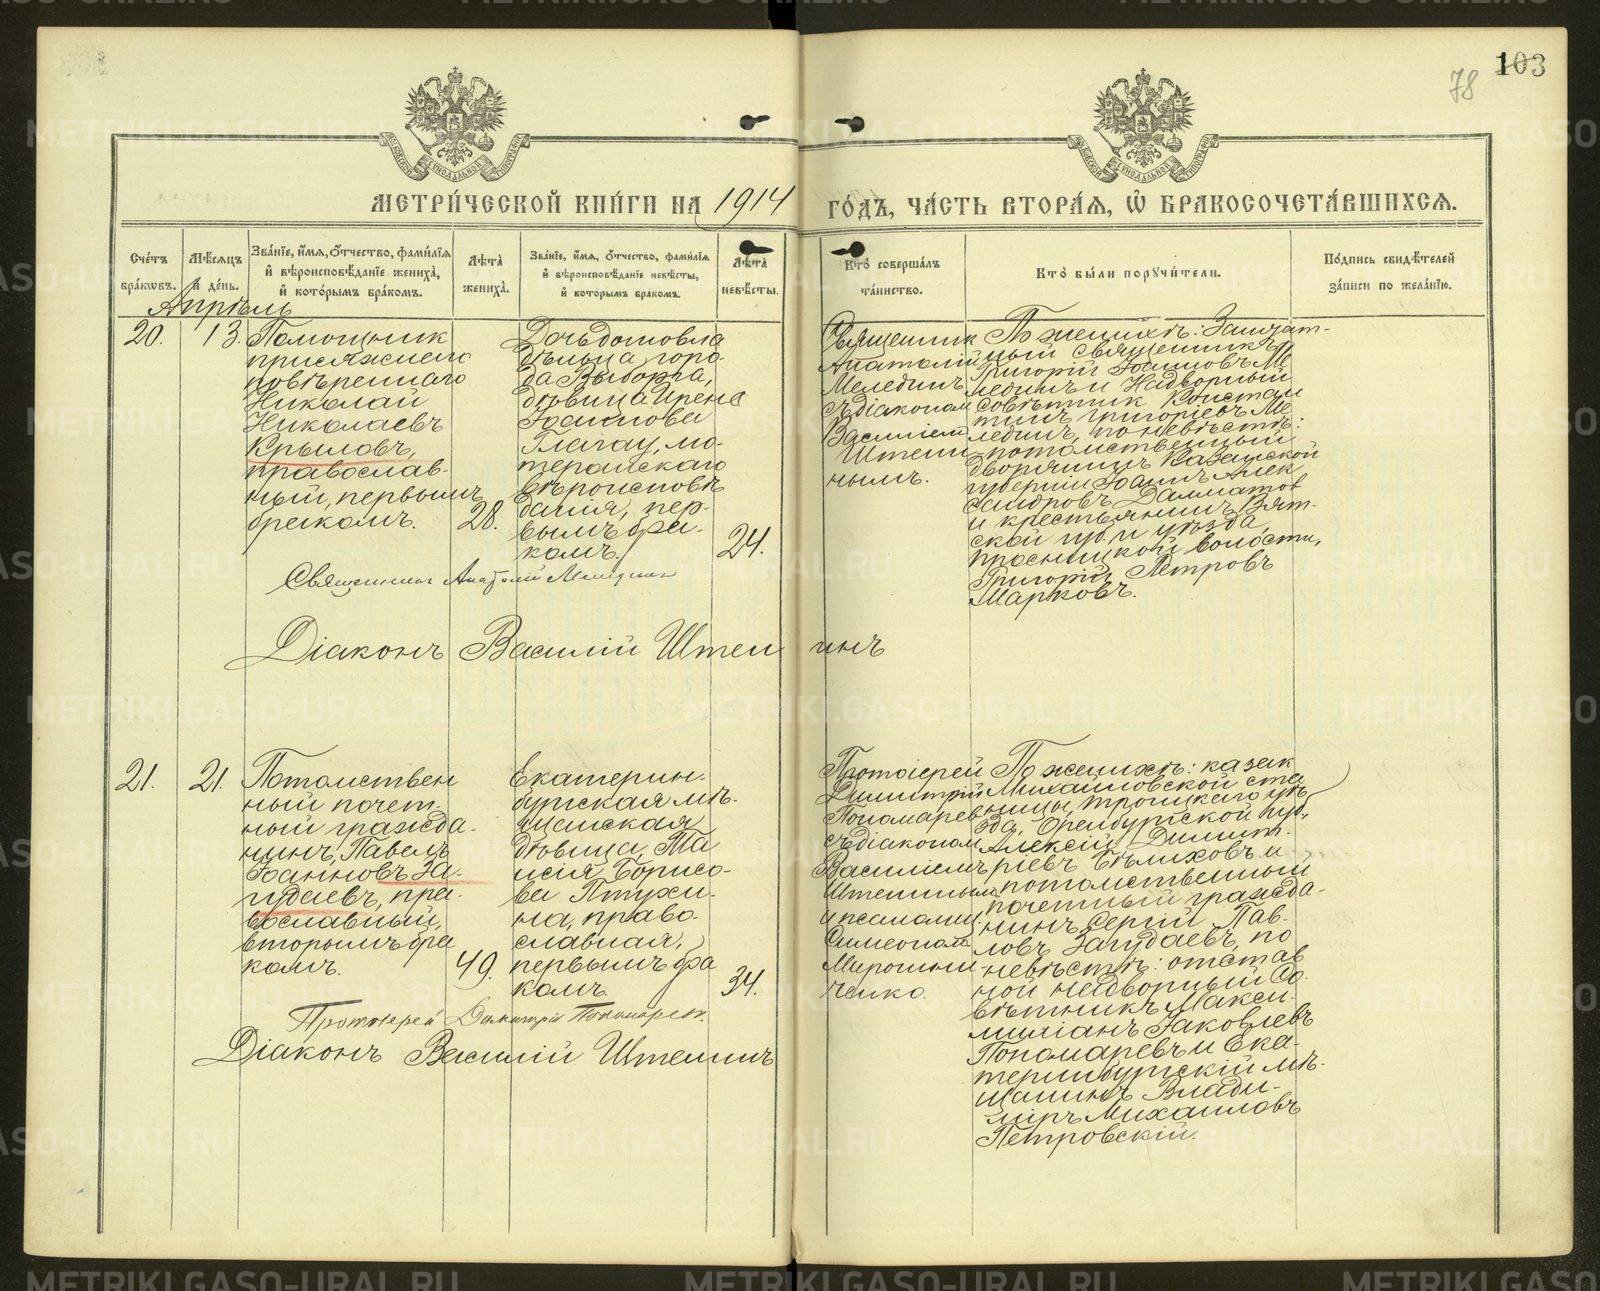 103
78
МЕТРИ́ЧЕСКОЙ КНИ́ГИ НА 1914 ГО́ДЪ, ЧА́СТЬ ВТОРА́Я, Ѽ БРАКОСОЧЕТА́ВШИХСЯ.
Сче́тъ бра́кѡвъ.
Мѣ́сяцъ и҆ де́нь.
Зва́нїе, и҆́мя, ѻ҆́тчество, фами́лїя и҆ вѣроисповѣ́данїе жениха̀, и҆ кото́рымъ бра́комъ.
Лѣ́та жениха̀.
Зва́нїе, и҆́мя, ѻ҆́тчество, фами́лїя и҆ вѣроисповѣ́данїе невѣ́сты, и҆ которымъ бракомъ.
Лѣ́та невѣ́сты.
Кто̀ соверша́лъ та́инство.
Кто̀ бы́ли порꙋчи́тели.
По́дпись свидѣ́телей за́писи по жела́нїю.
Апрѣль
20.
13.
Помощник
присяжнаго
повѣреннаго
Николай
Николаевъ
Крыловъ,
православ-
ный, первымъ
бракомъ.
28.
Дочь домовла
дѣльца горо-
да Выборга,
дѣвица Ирена
Іоаннова
Глагау, лю-
теранскаго
вѣроисповѣ
данія, пер-
вымъ бра-
комъ.
24.
Священник
Анатолій
Меледин
съ діаконом
Василіем
Штенни-
нымъ.
По женихѣ: Заштат-
ный священникъ
Григорій Іоанновъ Ме
лединъ и Надворный
совѣтник Констан
тинъ Григорьевъ Ме
лединъ, по невѣстѣ:
потомственный
дворянинъ Казанской
губерніи Іоаннъ Алек
сандровъ Далматов
и крестьянинъ Вят-
ской губ. и уѣзда,
Просницкой волости,
Григорій Петровъ
Марковъ.
Священник Анатолий Меледин
Діаконъ Василій Штеннинъ
21.
21.
Потомствен
ный почет-
ный гражда-
нинъ, Павелъ
Іоанновъ За-
гудаевъ, пра-
вославный,
вторымъ бра
комъ.
49.
Екатерин-
бургская мѣ-
щанская
дѣвица, Та
исія Борисо-
ва Птухи-
на, право-
славная,
первымъ бра
комъ.
34.
Протоіерей
Димитрій
Пономарев
съ діаконом
Василіемъ
Штенниным
и псаломщ.
Симеоном
Мирошни-
ченко.
По женихѣ: казак
Михайловской ста
ницы, Троицкаго уѣ
зда, Оренбургской губ.,
Алексій Димит-
ріевъ Бѣлиховъ и
потомственный
почетный гражда-
нинъ Сергій Пав-
ловъ Загудаевъ, по
невѣстѣ: отстав
ной надворный Со-
вѣтникъ Макси-
миліанъ Іаковлевъ
Пономаревъ и Ека-
теринбургскій мѣ-
щанинъ Влади-
міръ Михаиловъ
Петровскій.
Протоиерей Димитрій Пономарев.
Діаконъ Василій Штеннинъ